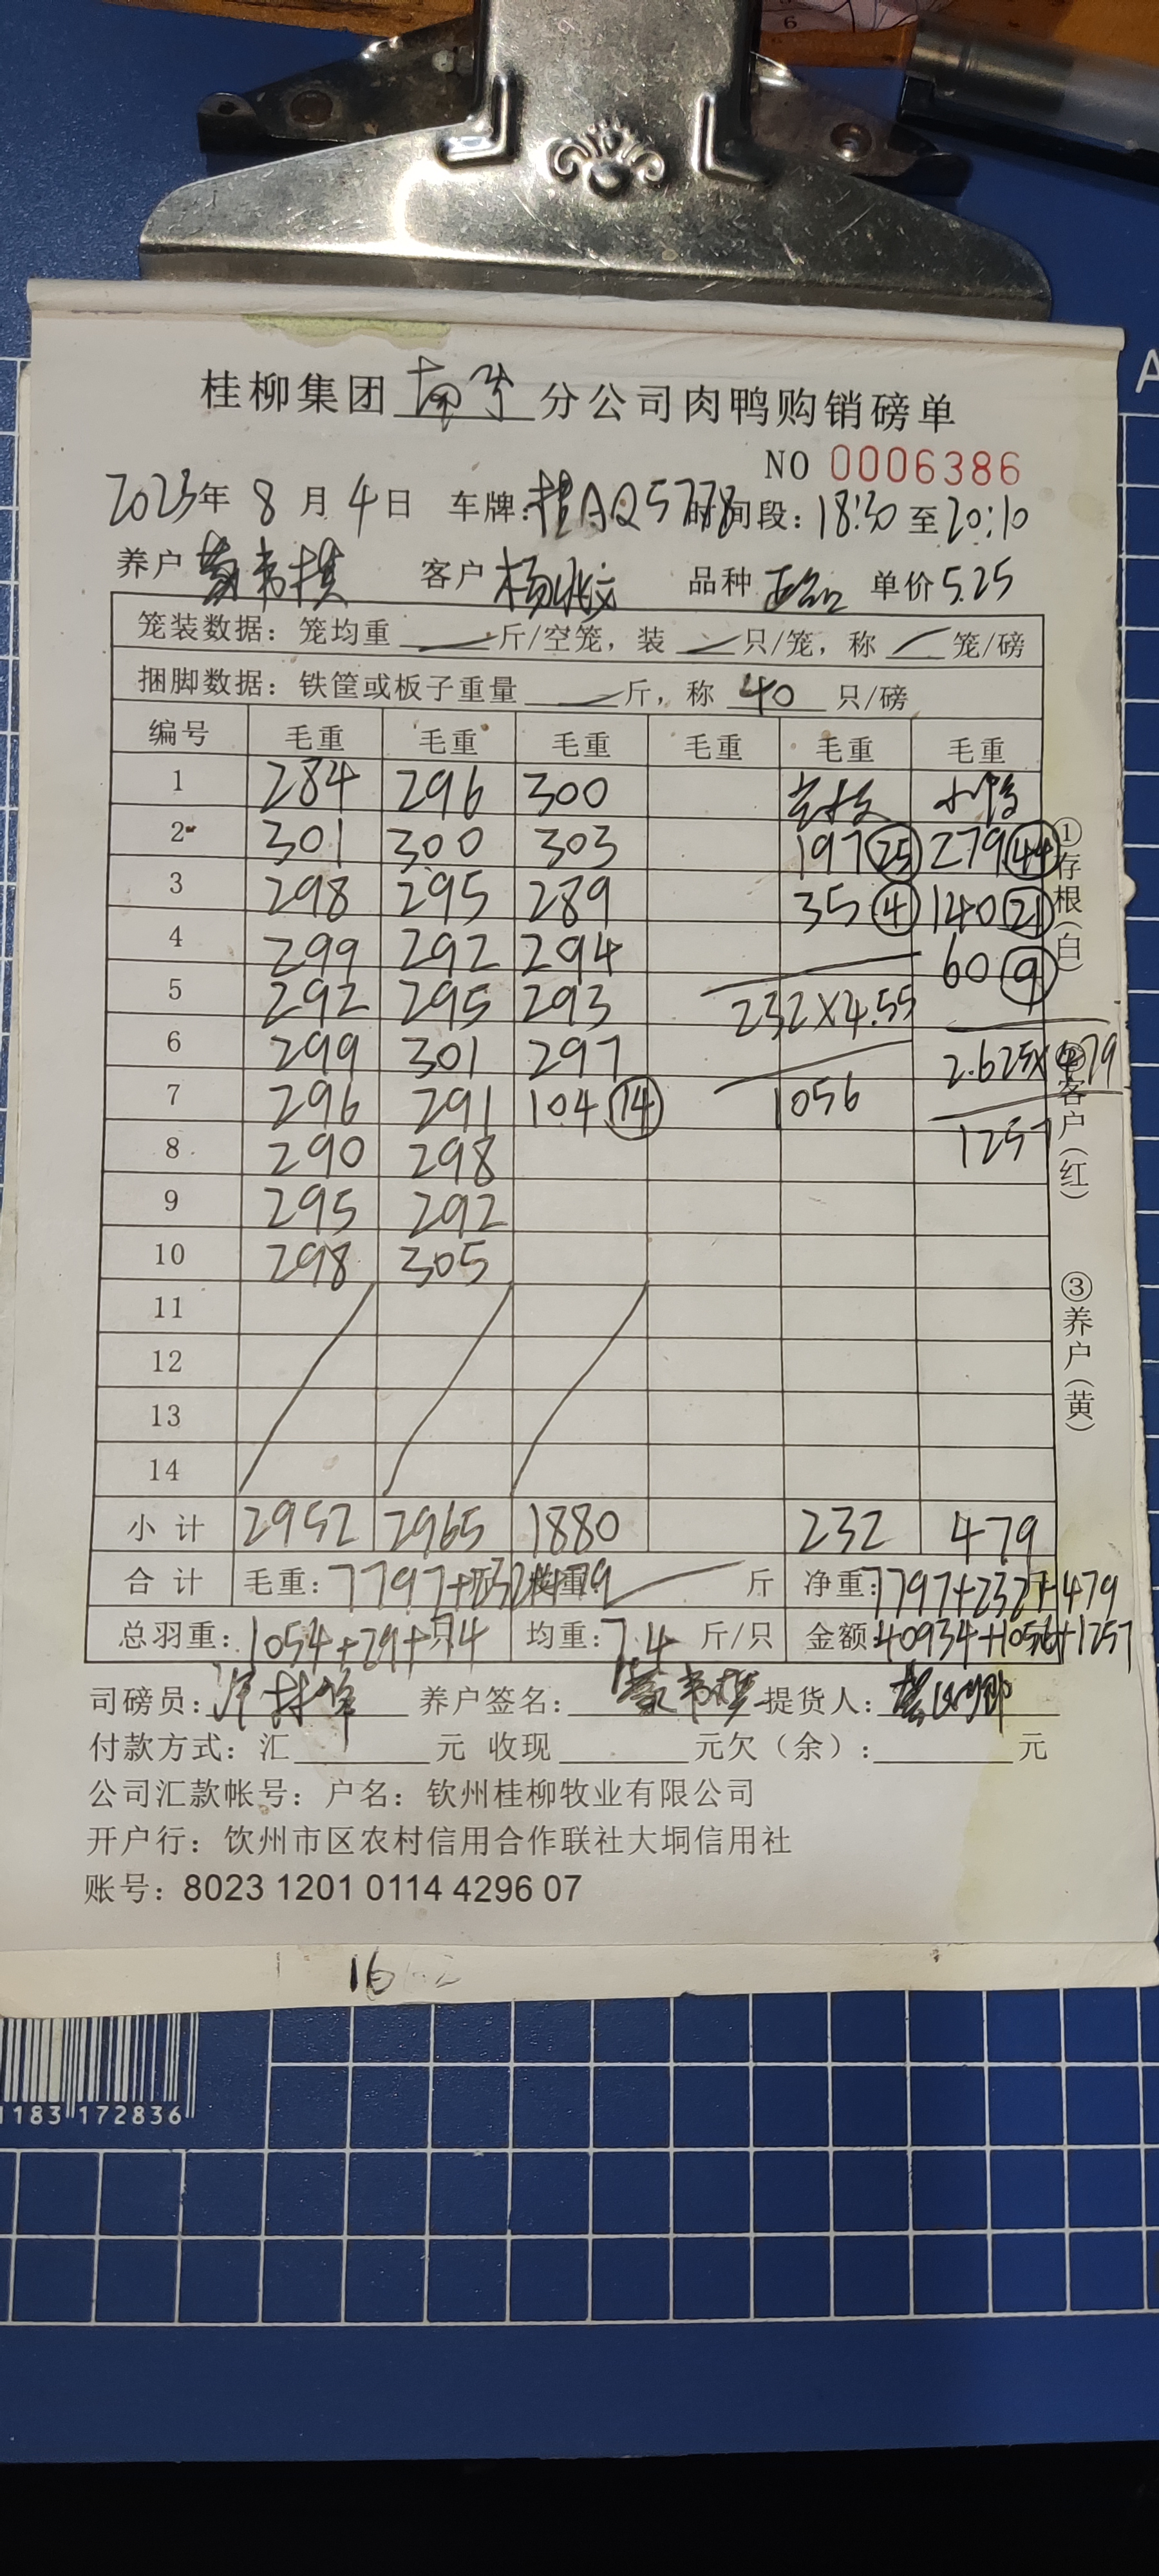 桂柳集团南宁分公司肉鸭购销磅单
NO 0006386
2023年 8 月 4 日 车牌:桂AQ5778 时间段:18:30 至 20:10
养户 客户 杨 品种 正品 单价 5.25
笼装数据:笼均重 斤/空笼,装 只/笼,称 笼/磅
捆脚数据:铁筐或板子重量 斤,称 40 只/磅
编号 毛重 毛重 毛重 毛重 毛重 毛重
1 284 296 300 小鸭
2 301 300 303 197 25 279 44
3 298 295 289 35 4 140 21
4 299 292 294 60 9
5 292 295 293 232×4.55
6 299 301 297 2.625×479
7 296 291 104 14 1056 1257
8 290 298
9 295 292
10 298 305
11
12
13
14
小计 2952 2965 1880 232 479
合计 毛重:7797+232+479 斤 净重:7797+232+479
总羽重:1054+29+74 只 均重:7.4 斤/只 金额:40934+1056+1257
司磅员: 养户签名: 提货人:
付款方式:汇 元 收现 元欠(余): 元
公司汇款帐号:户名:钦州桂柳牧业有限公司
开户行:钦州市区农村信用合作联社大垌信用社
账号:8023 1201 0114 4296 07
①存根(白)
②客户(红)
③养户(黄)
16
1183 172836
A
6